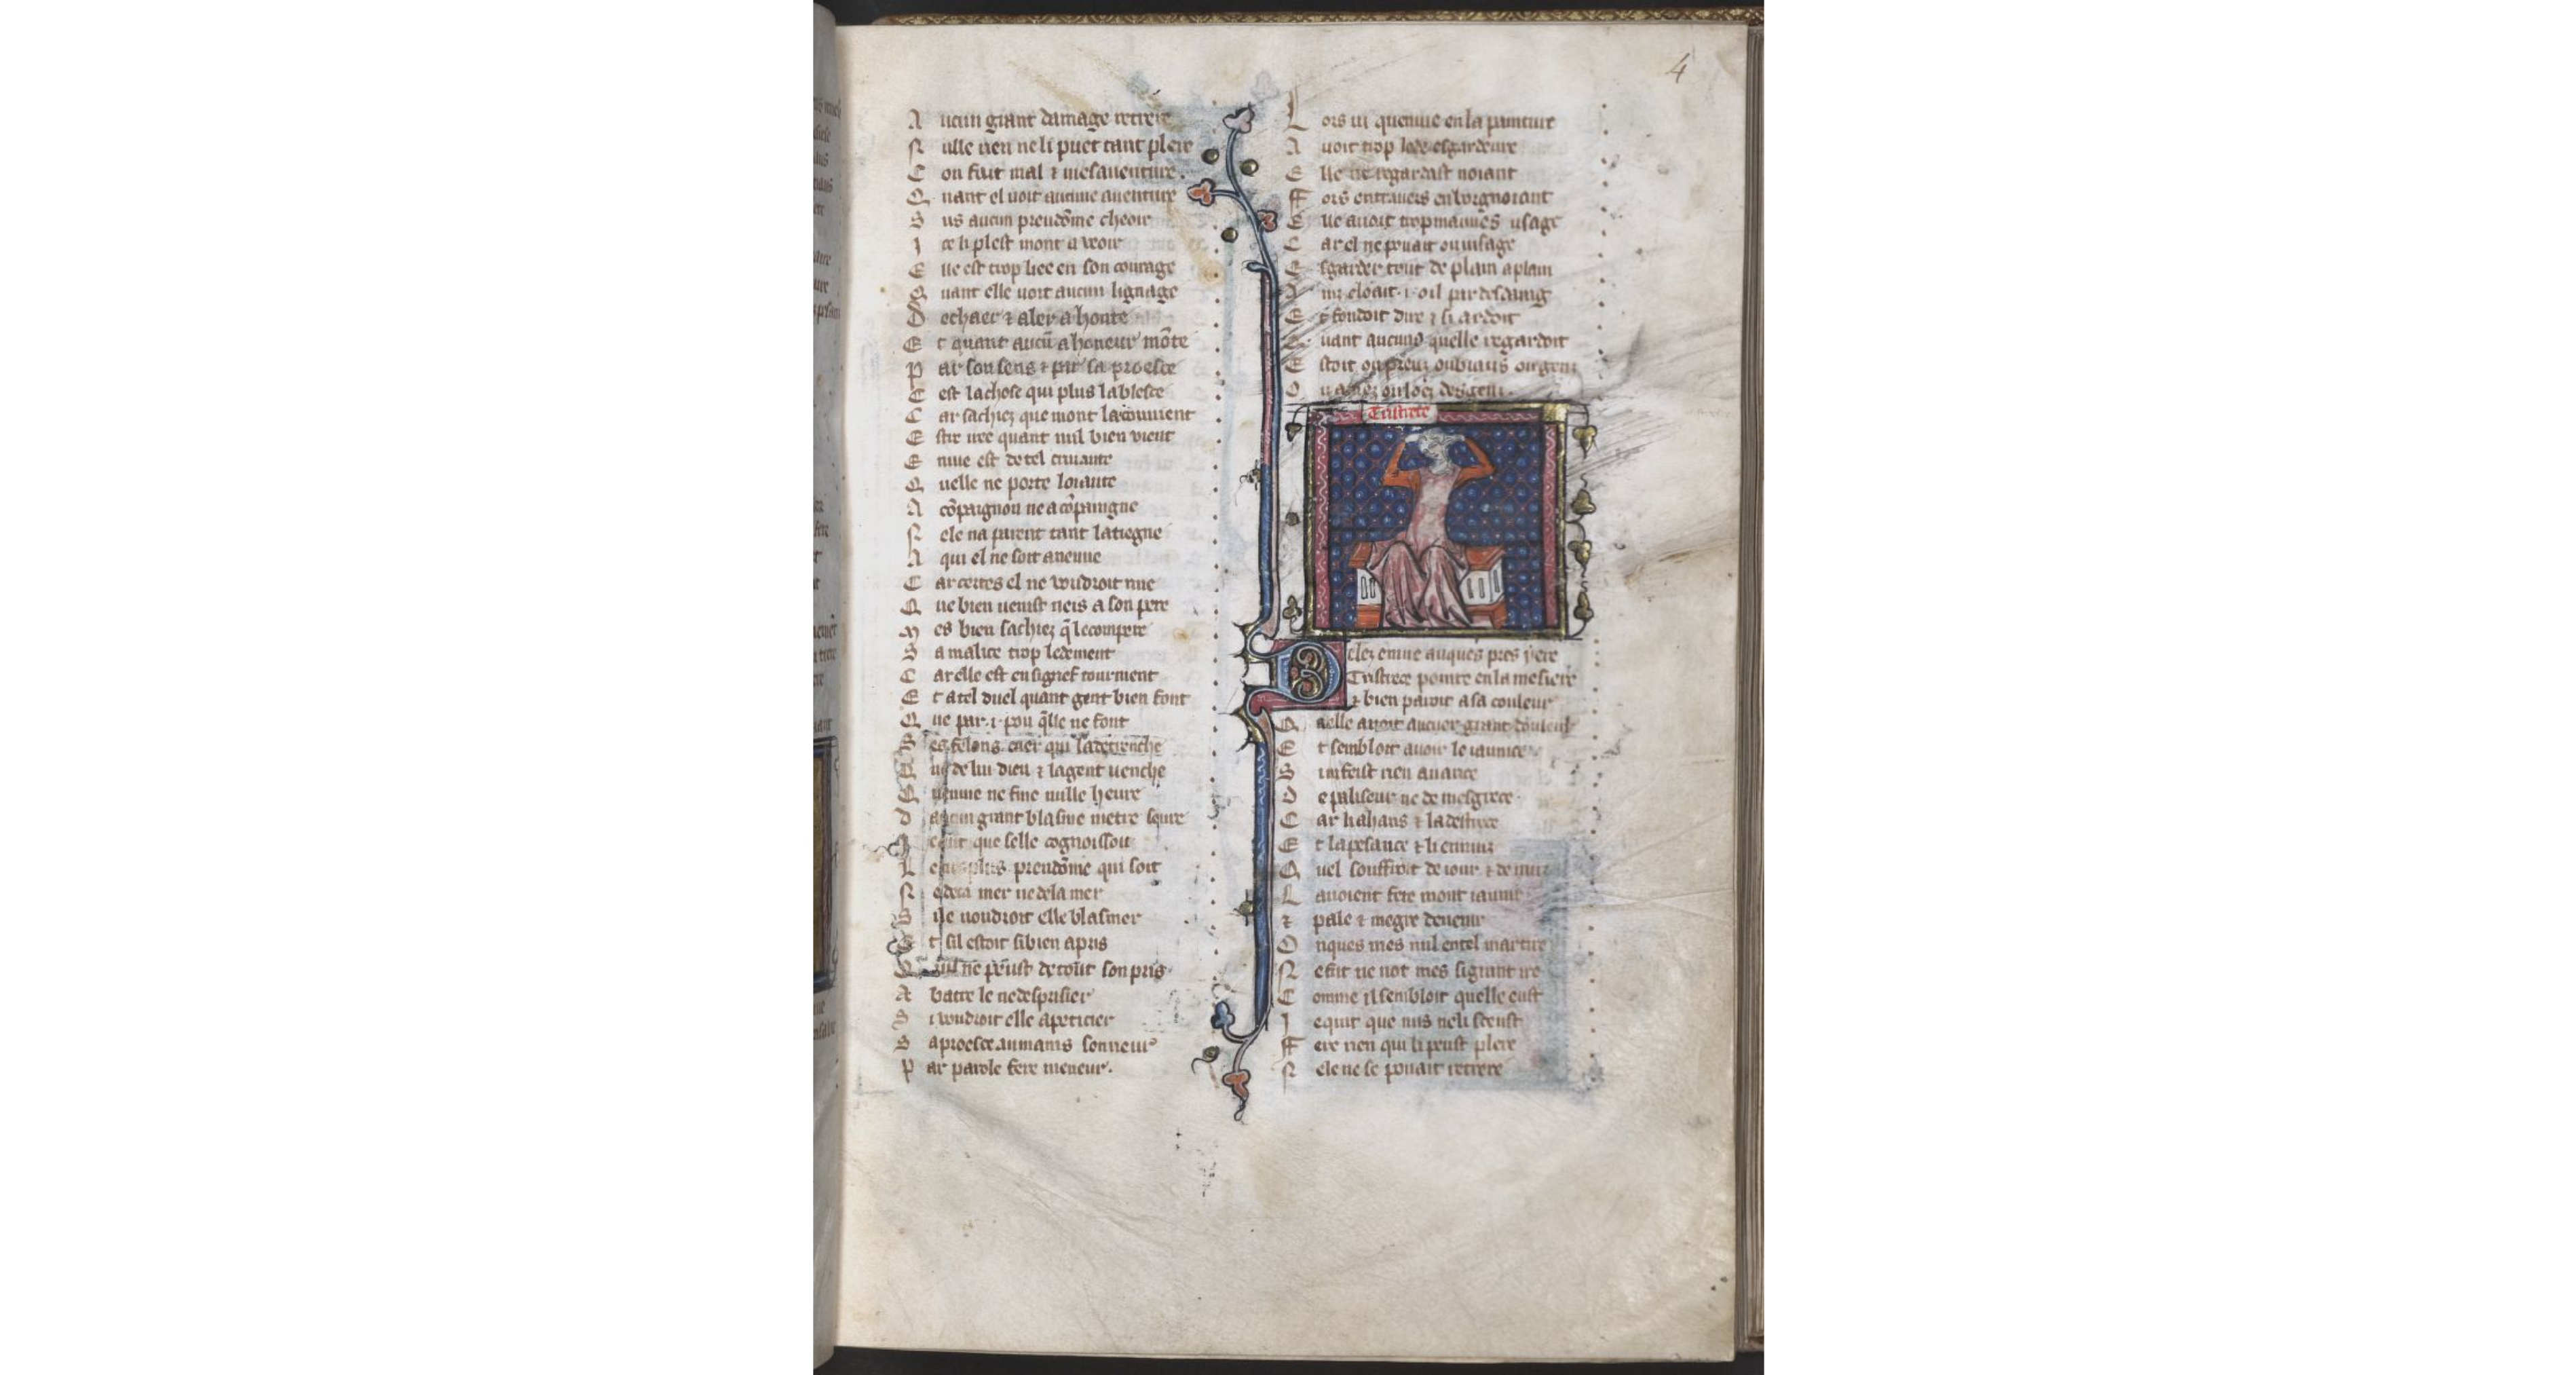 4
A ucun grant damage retrere
N ulle rien ne li puet tant plere
C on fait mal ⁊ mesauenture.
Q uant el uoit aucune auenture
S us aucun preudōme cheoir
I ce li plest mont a veoir
E lle est trop liee en son courage
Q uant elle uoit aucun lignage
D echaer ⁊ aler a honte
E t quant aucū a honeur mōte
P ar son sens ⁊ par sa proesce
C est la chose qui plus la blesce
C ar sachiez que mont la couuient
E stre iree quant nul bien vient
E nuie est de tel cruaute
Q uelle ne porte loiaute
A cōpaignon ne a cōpaingne
N ele na parent tant la tiegne
A qui el ne soit anemie
C ar certes el ne voudroit mie
Q ue bien uenist neis a son pere
M es bien sachiez q̄ le compere
S a malice trop ledement
C ar elle est en si gref tourment
E t a tel duel quant gent bien font
Q ue par .i. pou q̄lle ne font
S es felons cuer qui la detrenche
Q ue de lui dieu ⁊ la gent uenche
E nuie ne fine nulle heure
D aucun grant blasme metre seure
I e cuit que selle cognoissoit
L e plus preudōme qui soit
N e deca mer ne dela mer
S i le uoudroit elle blasmer
E t sil estoit si bien apris
Q uil ne peust de tout son pris
A batre le ne desprisier
S i voudroit elle apeticier
S a proesce au mains sonneur
P ar parole fere meneur.
L ors ui quenuie en la painture
A uoit trop lede esgardeure
E lle ne regardast noiant
F ors entrauers en borgnoiant
E lle auoit trop mauues usage
C ar el ne pouait ou uisage
E sgarder tout de plain a plain
A inz clooit .i. oil par desdaing
E t fondoit dire ⁊ si ardoit
Q uant aucuns quelle regardoit
E stoit ou preuz ou biaus ou gent
O u amez ou loez de gent.
Tristrece
Delez enuie auques pres yere
Tristrece pointe en la mesiere
⁊ bien paroit a sa couleur
Q uelle auoit au cuer grant douleur
E t sembloit auoir le iaunice
S i ni feist rien auarice
D e paliseur ne de mesgrece
C ar li ahans ⁊ la destrece
E t la pesance ⁊ li ennuiz
Q uel souffroit de iour ⁊ de nuiz
L auoient fete mont iaunir
⁊ pale ⁊ megre deuenir
O nques mes nul en tel martire
N e fut ne not mes si grant ire
C omme il sembloit quelle eust
I e quit que nus ne li sceust
F ere rien qui li peust plere
N ele ne se pouait retrere